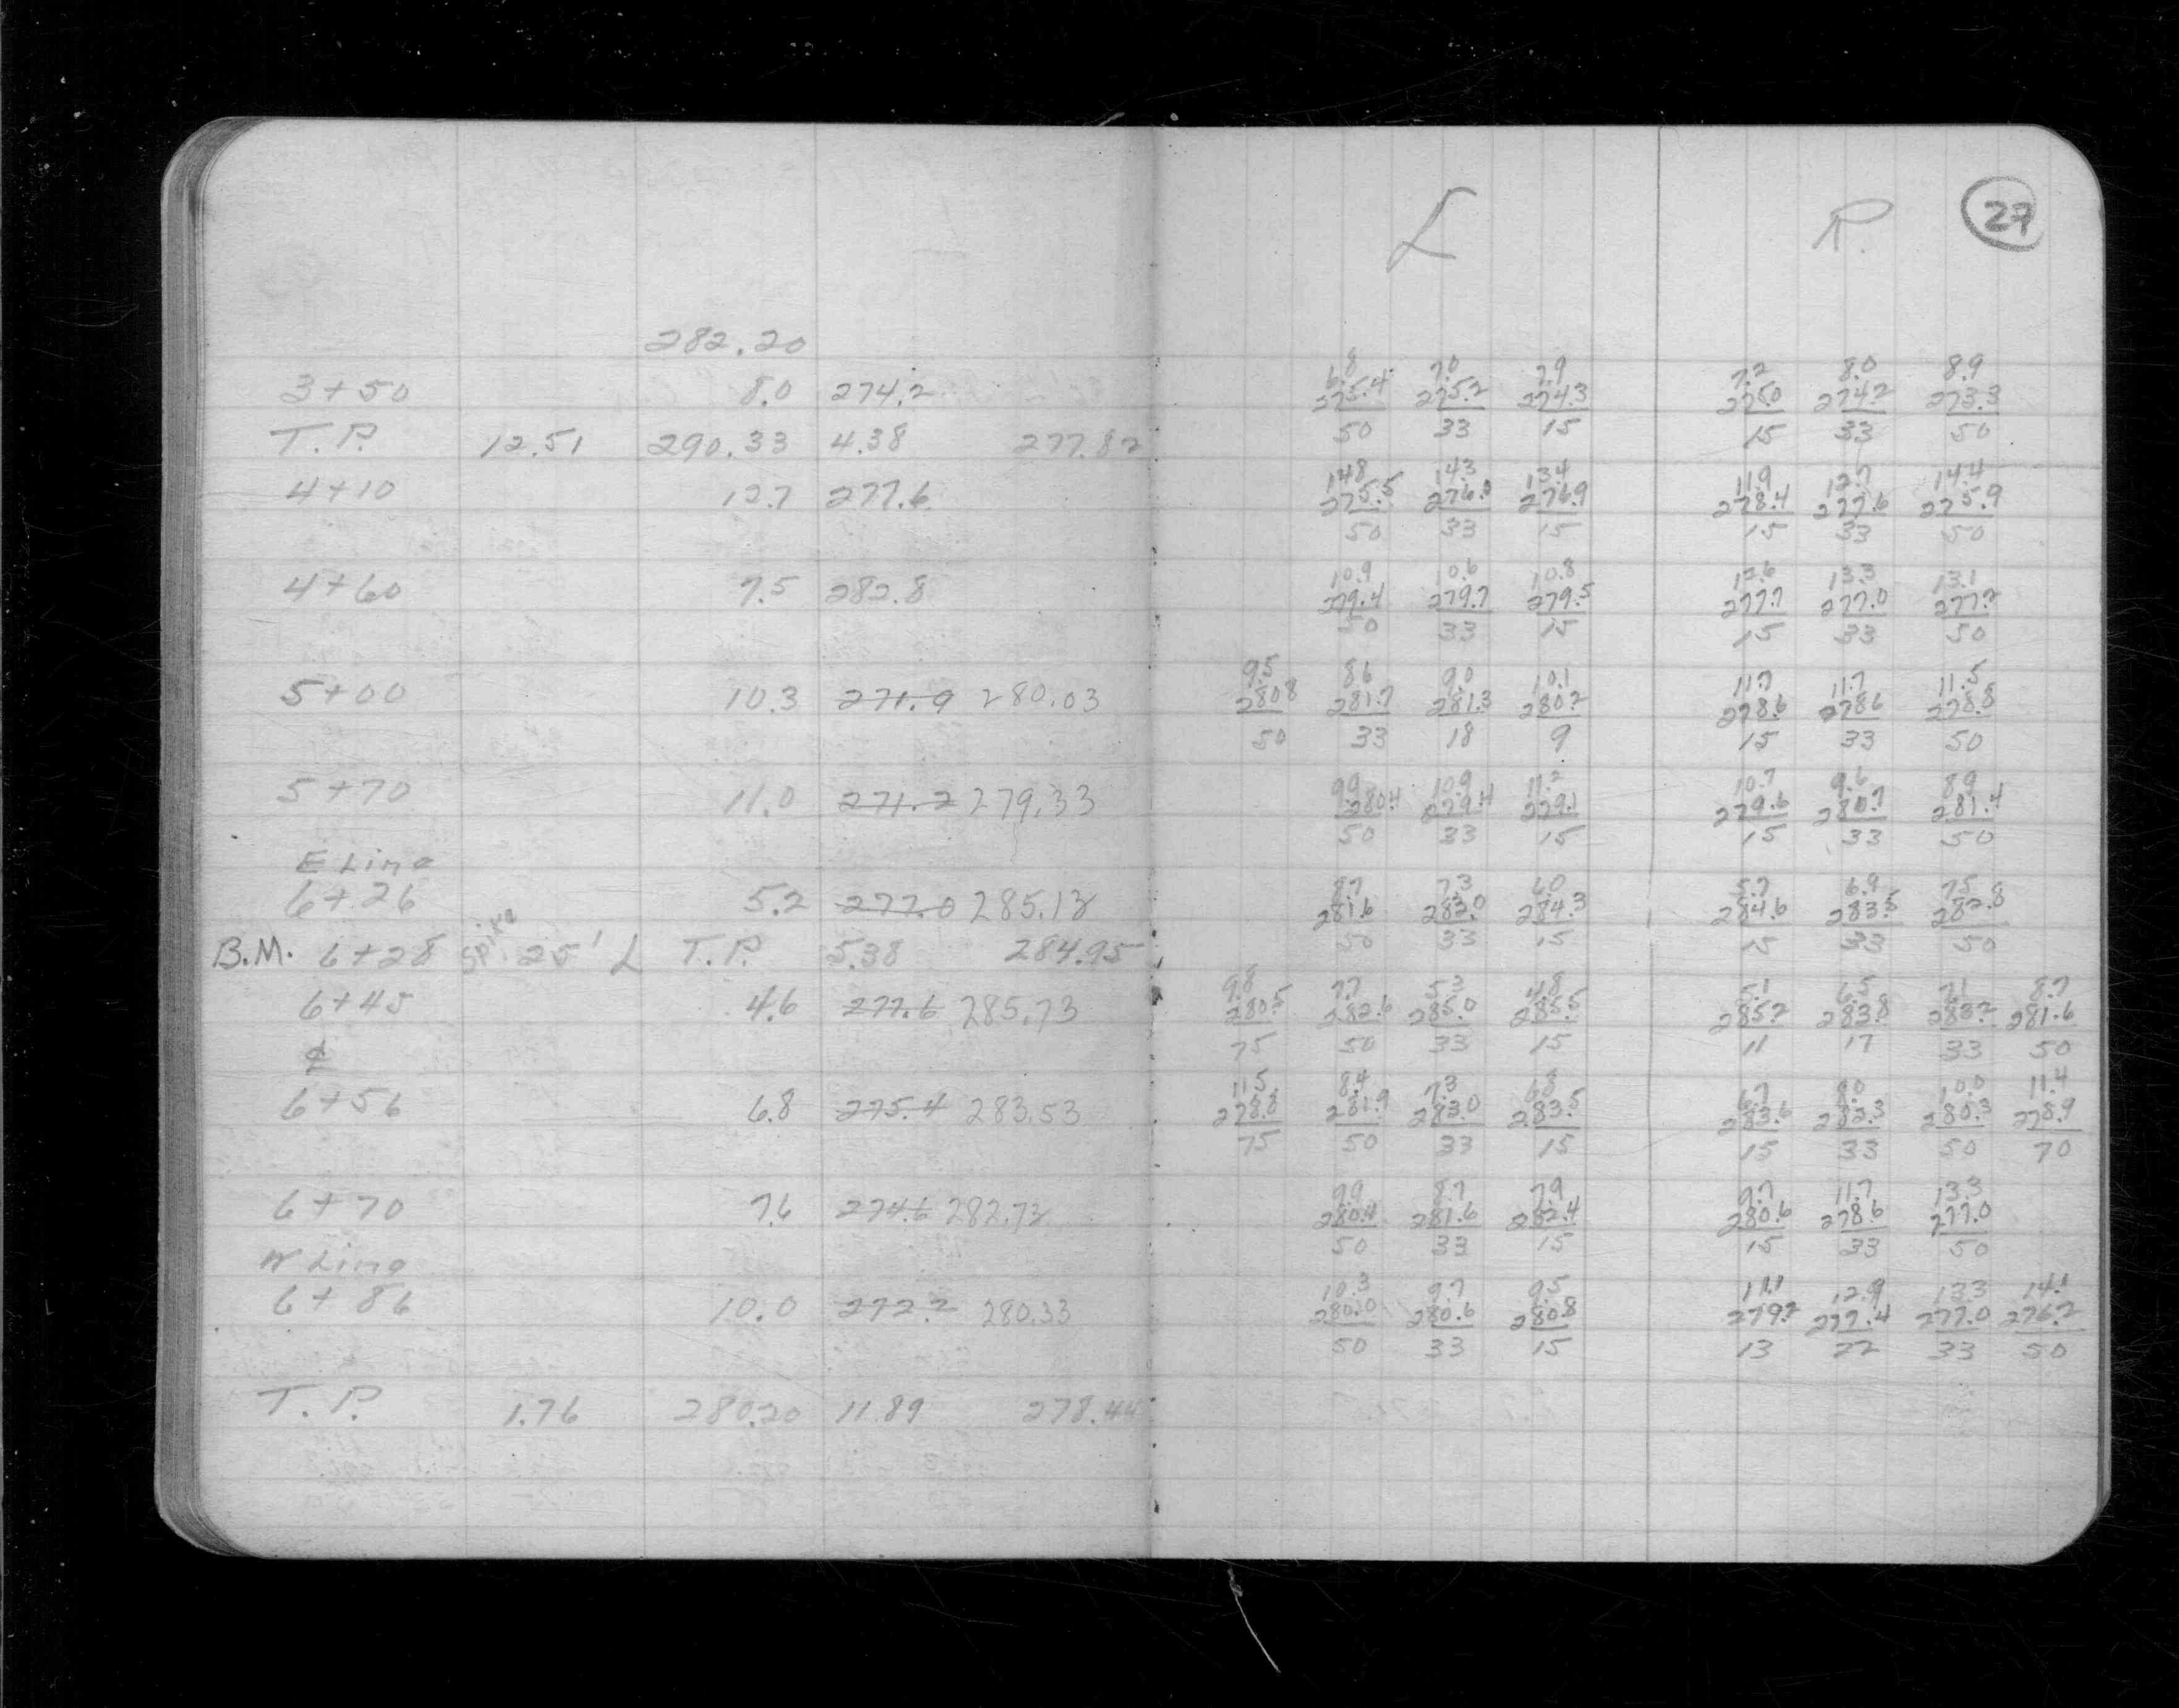 L R. 27
282.20
6.8 7.0 7.9 7.2 8.0 8.9
3+50 8.0 274.2 275.4 275.2 274.3 275.0 274.2 273.3
T.P. 12.51 290.33 4.38 277.82 50 33 15 15 33 50
14.8 14.3 13.4 11.9 12.7 14.4
4+10 12.7 277.6 275.5 276.0 276.9 278.4 277.6 275.9
50 33 15 15 33 50
10.9 10.6 10.8 12.6 13.3 13.1
4+60 7.5 282.8 279.4 279.7 279.5 277.7 277.0 277.2
50 33 15 15 33 50
9.5 8.6 9.0 10.1 11.7 11.7 11.5
5+00 10.3 271.9 280.03 280.8 281.7 281.3 280.2 278.6 278.6 278.8
50 33 18 9 15 33 50
9.9 10.9 11.2 10.7 9.6 8.9
5+70 11.0 271.2 279.33 280.4 279.4 279.1 279.6 280.7 281.4
50 33 15 15 33 50
E Line
8.7 7.3 6.0 5.7 6.9 7.5
6+26 5.2 277.0 285.13 281.6 283.0 284.3 284.6 283.5 282.8
B.M. 6+28 Spike 25' L T.P. 5.38 284.95 50 33 15 15 33 50
9.8 7.7 5.3 4.8 5.1 6.5 7.1 8.7
6+45 4.6 277.6 285.73 280.5 282.6 285.0 285.5 285.2 283.8 283.2 281.6
℄ 75 50 33 15 11 17 33 50
11.5 8.4 7.3 6.8 6.7 8.0 10.0 11.4
6+56 6.8 275.4 283.53 278.8 281.9 283.0 283.5 283.6 282.3 280.3 278.9
75 50 33 15 15 33 50 70
9.9 8.7 7.9 9.7 11.7 13.3
6+70 7.6 274.6 282.73 280.4 281.6 282.4 280.6 278.6 277.0
50 33 15 15 33 50
W Line
10.3 9.7 9.5 11.1 12.9 13.3 14.1
6+86 10.0 272.2 280.33 280.0 280.6 280.8 279.2 277.4 277.0 276.2
50 33 15 13 22 33 50
T.P. 1.76 280.20 11.89 278.44